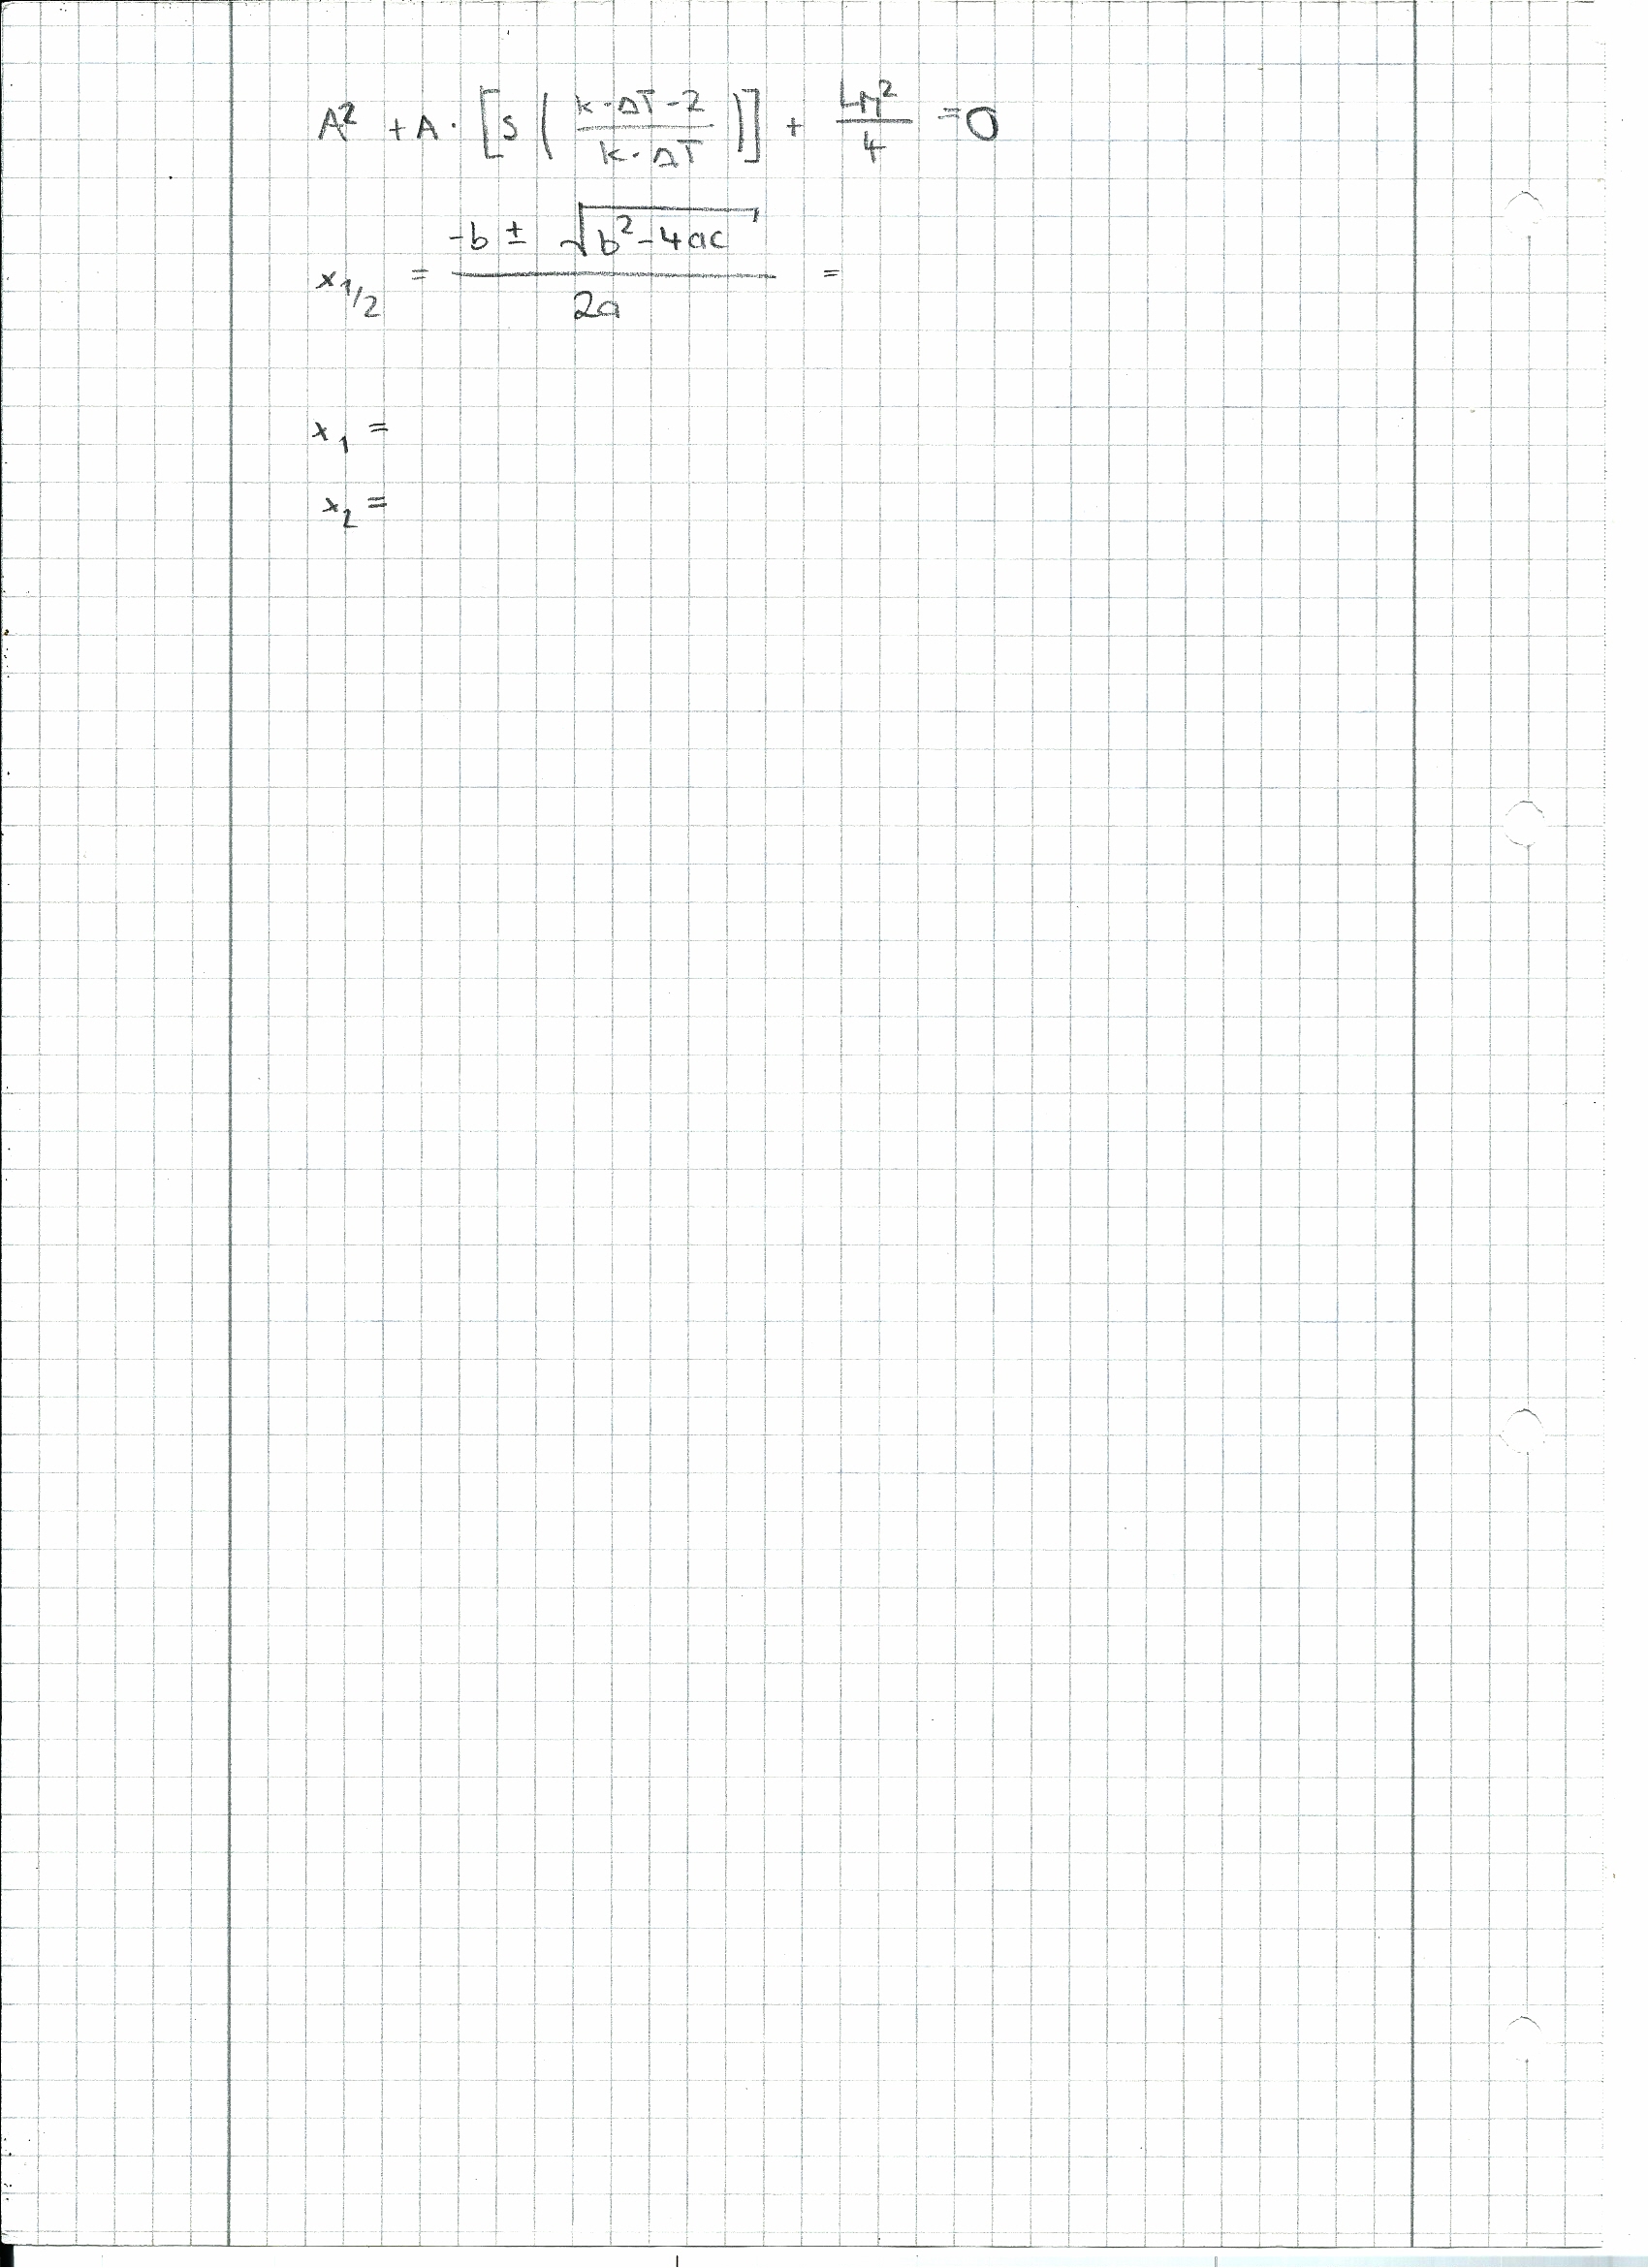 A² + A · [s (k · ΔT - 2 / k · ΔT)] + LM² / 4 = 0
x₁/₂ = -b ± √(b² - 4ac) / 2a =
x₁ =
x₂ =